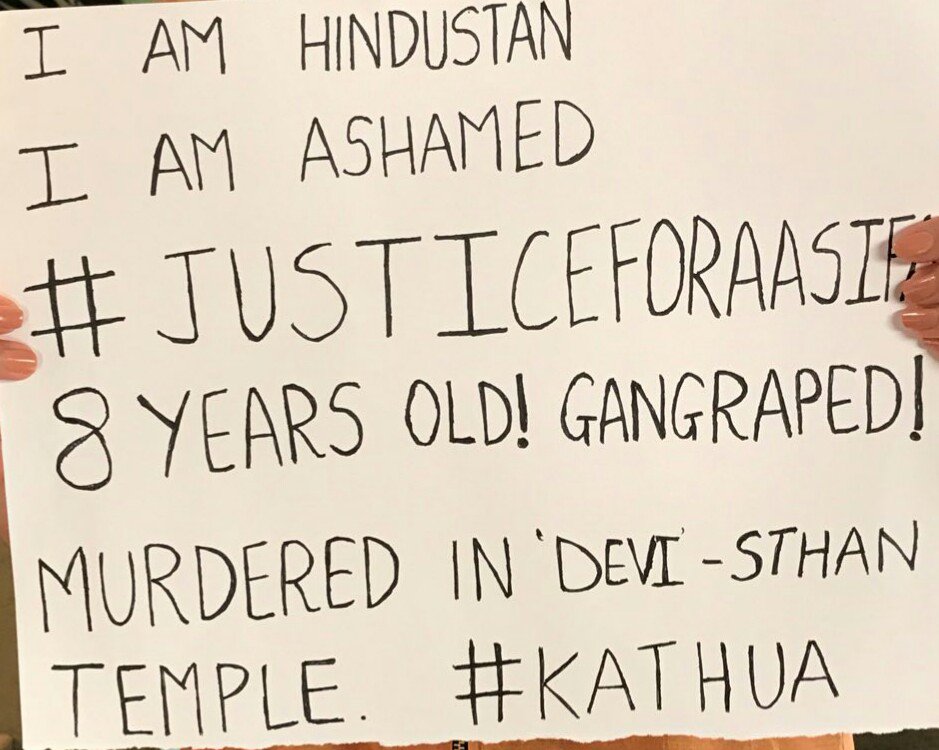 I AM HINDUSTAN
I AM ASHAMED
#JUSTICEFORAASIFA
8 YEARS OLD! GANGRAPED!
MURDERED IN 'DEVI'-STHAN
TEMPLE. #KATHUA